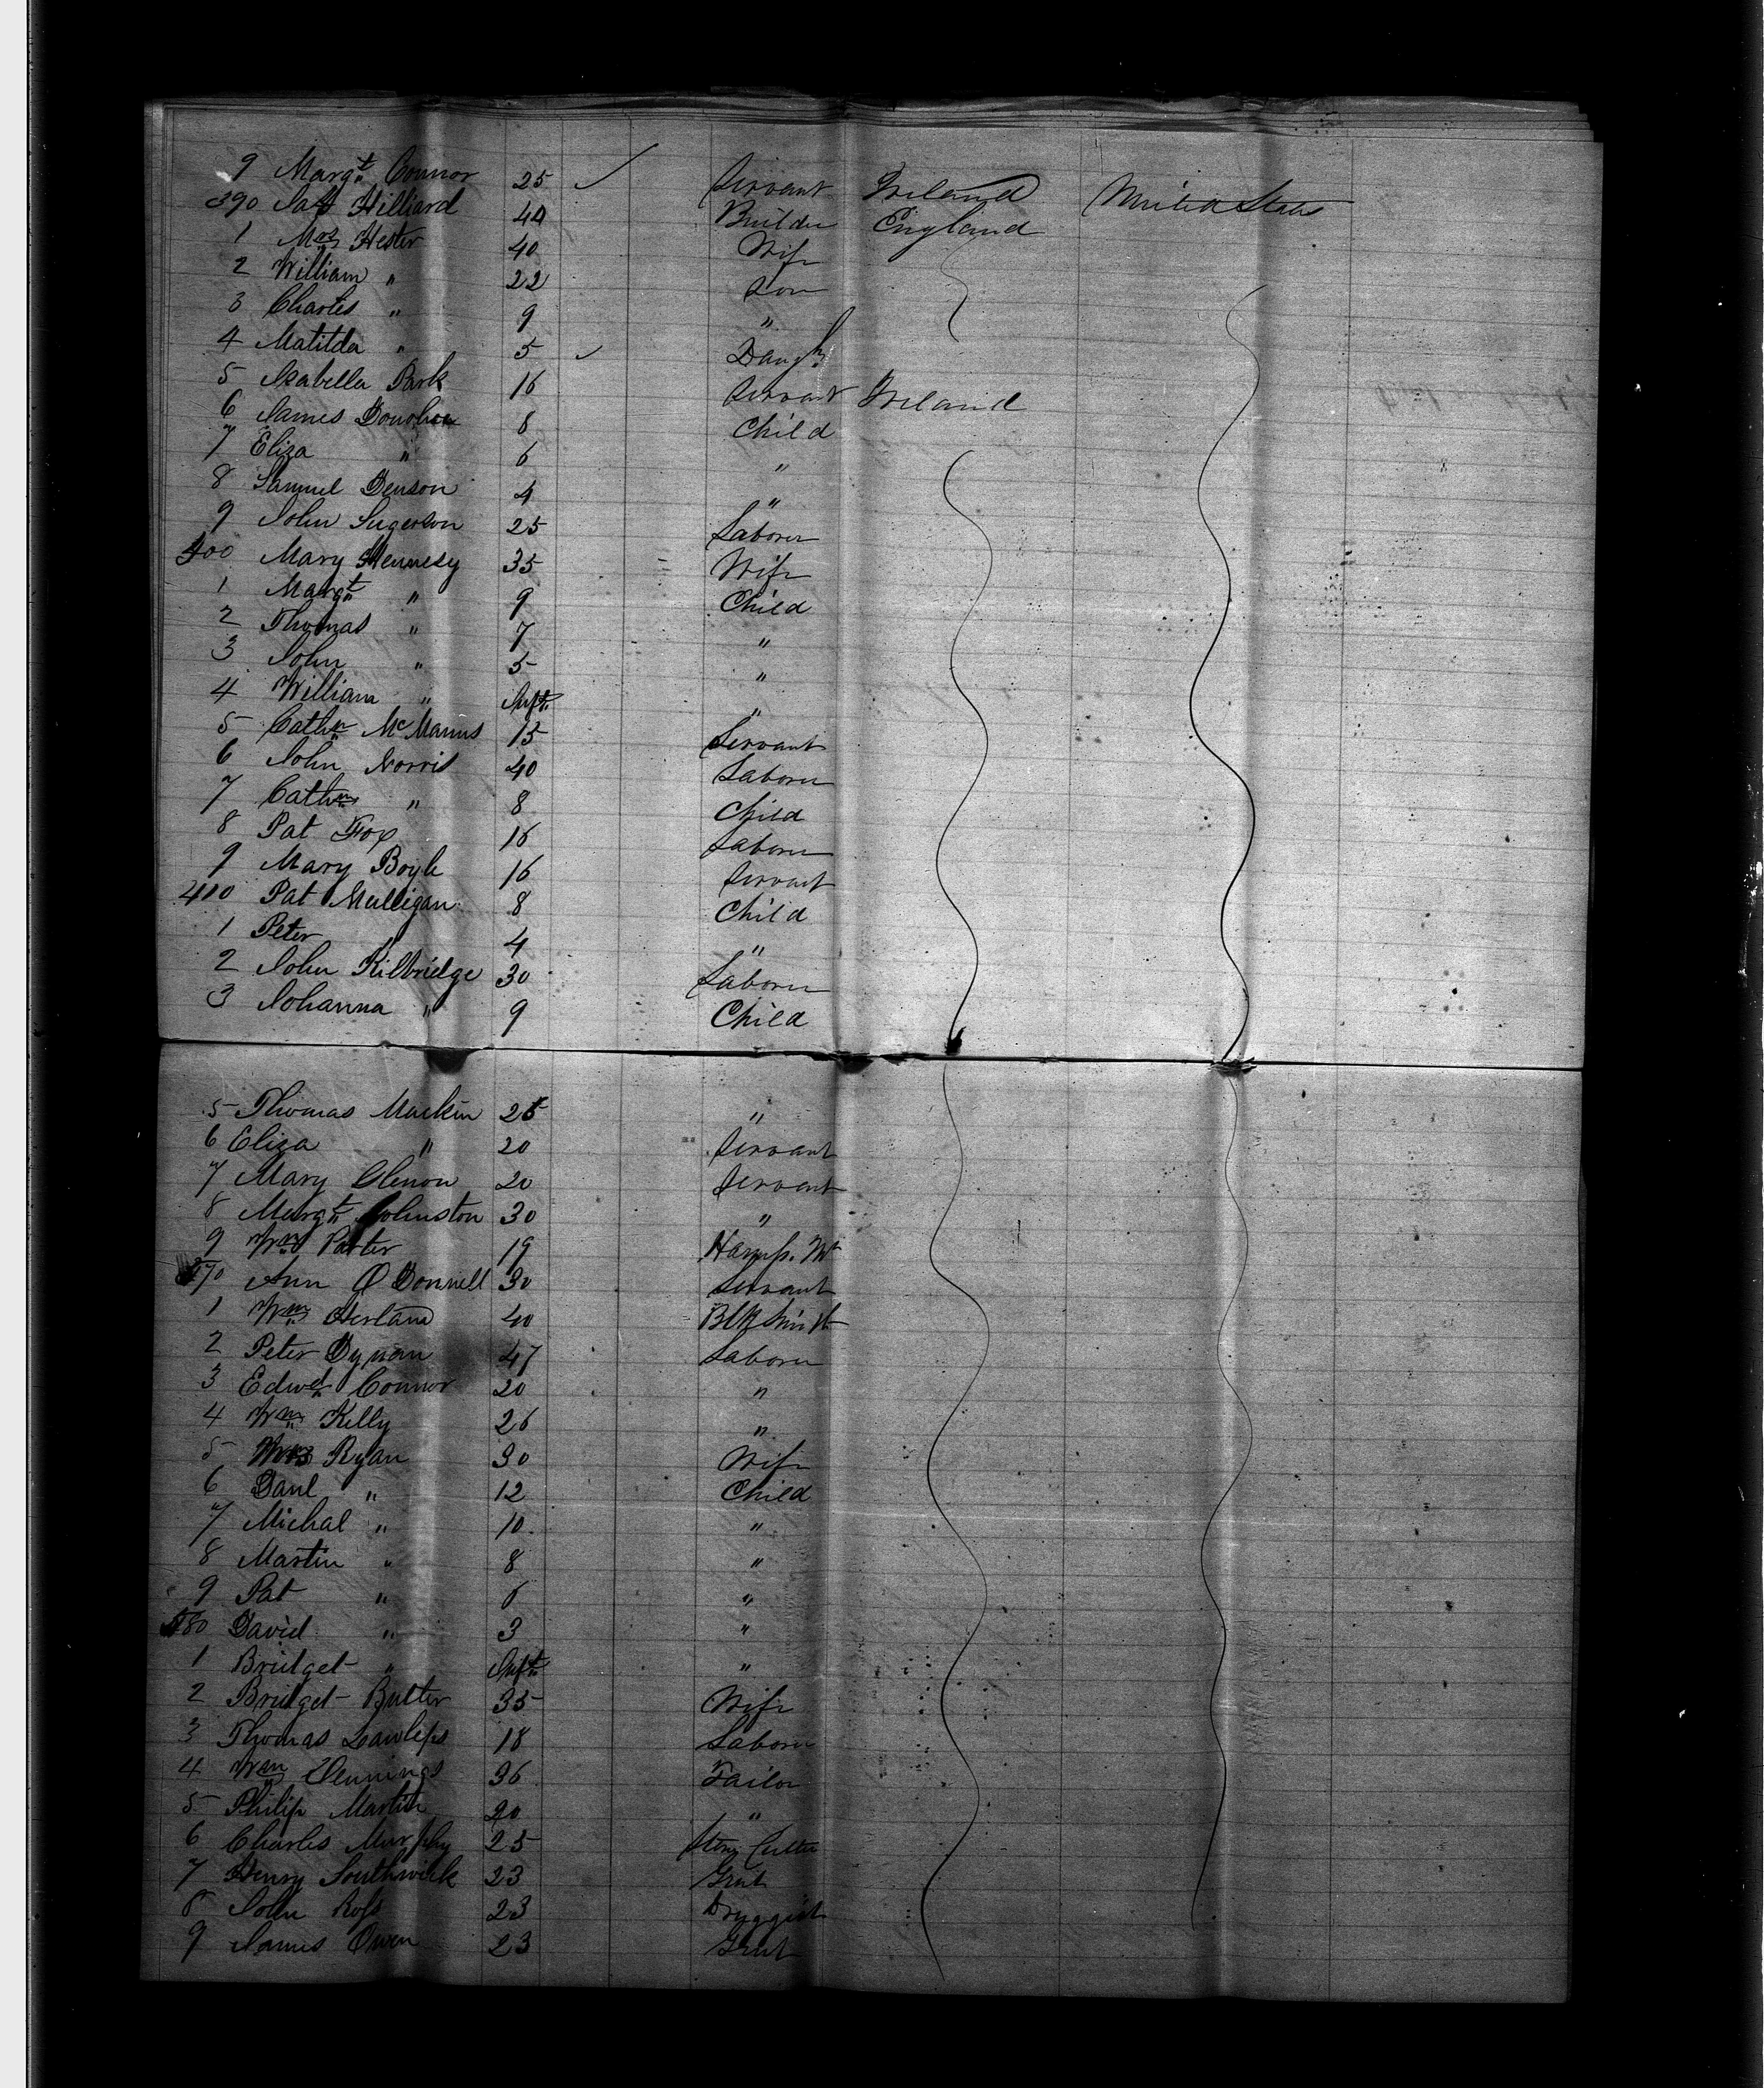 9 Margt Connor 25 ✓ Servant Ireland United States
390 Jas Hilliard 40 Builder England
1 Mrs Hester 40 Wife
2 William " 22 Son
3 Charles " 9 "
4 Matilda " 5 ✓ Daugh
5 Isabella Park 16 Servant Ireland
6 James Donohue 8 Child
7 Eliza " 6 "
8 Samuel Benson 4 "
9 John Sugerson 25 Laborer
400 Mary Hennesy 35 Wife
1 Margt " 9 Child
2 Thomas " 7 "
3 John " 5 "
4 William " Inft "
5 Cathn McManus 15 Servant
6 John Norris 40 Laborer
7 Cathn " 8 Child
8 Pat Fox 16 Laborer
9 Mary Boyle 16 Servant
410 Pat Mulligan 8 Child
1 Peter " 4 "
2 John Kilbridge 30 Laborer
3 Johanna " 9 Child
5 Thomas Mackin 25 "
6 Eliza " 20 Servant
7 Mary Glenon 20 Servant
8 Margt Johnston 30 "
9 Wm Porter 19
570 Ann O Donnell 30 Servant
1 Wm 40 Blk Smith
2 Peter Dynan 47 Laborer
3 Edwd Connor 20 "
4 Wm Kelly 26 "
5 Mrs Ryan 30 Wife
6 Danl " 12 Child
7 Michal " 10 "
8 Martin " 8 "
9 Pat " 6 "
580 David " 3 "
1 Bridget " Inft "
2 Bridget Butler 35 Wife
3 Thomas Lawless 18 Laborer
4 Wm Jennings 36 Tailor
5 Philip Martin 20 "
6 Charles Murphy 25 Stone Cutter
7 Henry Southwick 23 Gent
8 John Ross 23 Druggist
9 James Owen 23 Gent